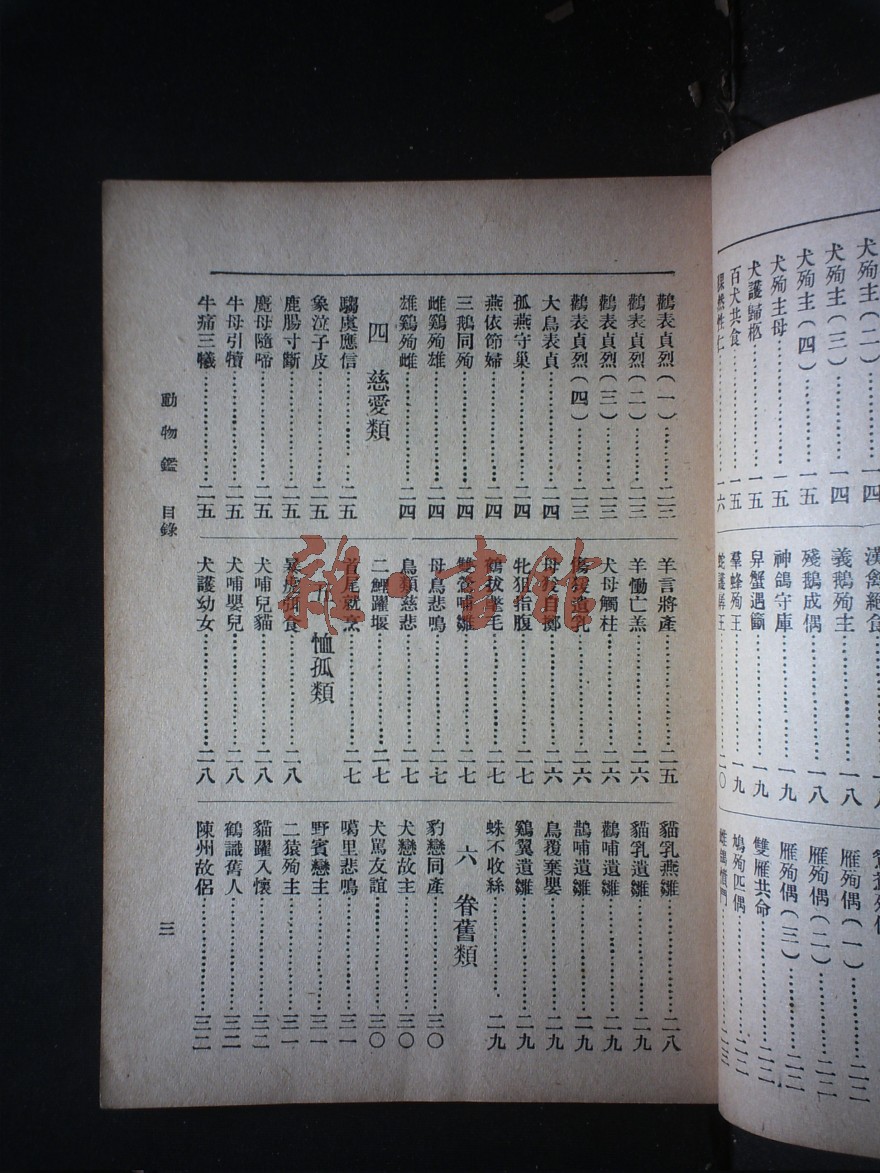 犬殉主(二)……一四
犬殉主(三)……一四
犬殉主(四)……一五
犬殉主母……一五
犬護歸柩……一五
百犬共食……一五
性仁……一六
漢禽絕食
義鵝殉主……一八
殘鵝成偶……一八
神鴿守庫……一九
蟹遇籲……一九
羣蜂殉王……一九
王……二〇
雁殉偶(一)……二二
雁殉偶(二)……二二
雁殉偶(三)……二二
雙雁共命……二二
鳩殉匹偶……二二
二三
鸛表貞烈(一)……二三
鸛表貞烈(二)……二三
鸛表貞烈(三)……二三
鸛表貞烈(四)……二三
大鳥表貞……二四
孤燕守巢……二四
燕依節婦……二四
三鵝同殉……二四
雌鷄殉雄……二四
雄鷄殉雌……二四
四 慈愛類
騶虞應信……二五
象泣子皮……二五
鹿腸寸斷……二五
麑母隨啼……二五
牛母引犢……二五
牛痛三犧……二五
羊言將產……二五
羊慟亡羔……二六
犬母觸柱……二六
傷猨遺乳……二六
母猨自擲……二六
牝狙指腹……二七
鶴拔氅毛……二七
雙倉哺雛……二七
母鳥悲鳴……二七
鳥類慈悲……二七
二鯉躍堰……二七
首尾就烹……二七
五 恤孤類
暴虎弭食……二八
犬哺兒貓……二八
犬哺嬰兒……二八
犬護幼女……二八
貓乳燕雛……二八
貓乳遺雛……二九
鸛哺遺雛……二九
鵲哺遺雛……二九
鳥覆棄嬰……二九
鷄翼遺雛……二九
蛛不收絲……二九
六 眷舊類
豹戀同產……三〇
犬戀故主……三〇
犬篤友誼……三〇
噶里悲鳴……三一
野賓戀主……三一
二猿殉主……三一
貓躍入懷……三二
鶴識舊人……三二
陳州故侶……三二
動物鑑 目錄
三